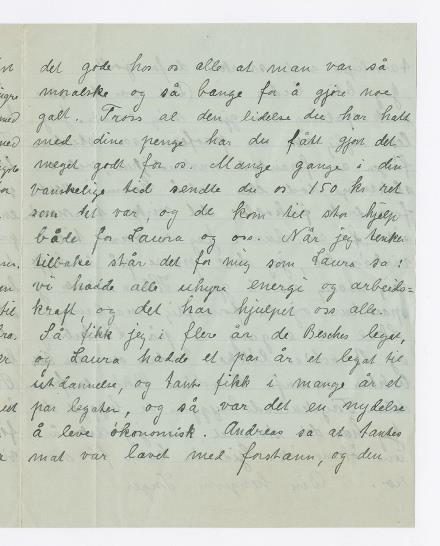 det gode hos os alle at man var så
moralske og så bange for å gjøre noe
galt. Tross al den lidelse du har hatt
med dine penge har du fått gjort det
meget godt for os. Mange gange i din
vanskelige tid sendte du os 150 kr ret
som det var, og de kom til stor hjelp
både for Laura og oss. Når jeg tenker
tilbake står det for mig som Laura sa:
vi hadde alle uhyre energi og arbeids=
kraft, og det har hjulpet oss alle.
Så fikk jeg i flere år de Besches legat,
og Laura hadde et par år et legat til
utdannelse, og tante fikk i mange år et
par legater, og så var det en nydelse
å leve økonomisk. Andreas sa at tantes
mat var lavet med forstann, og den